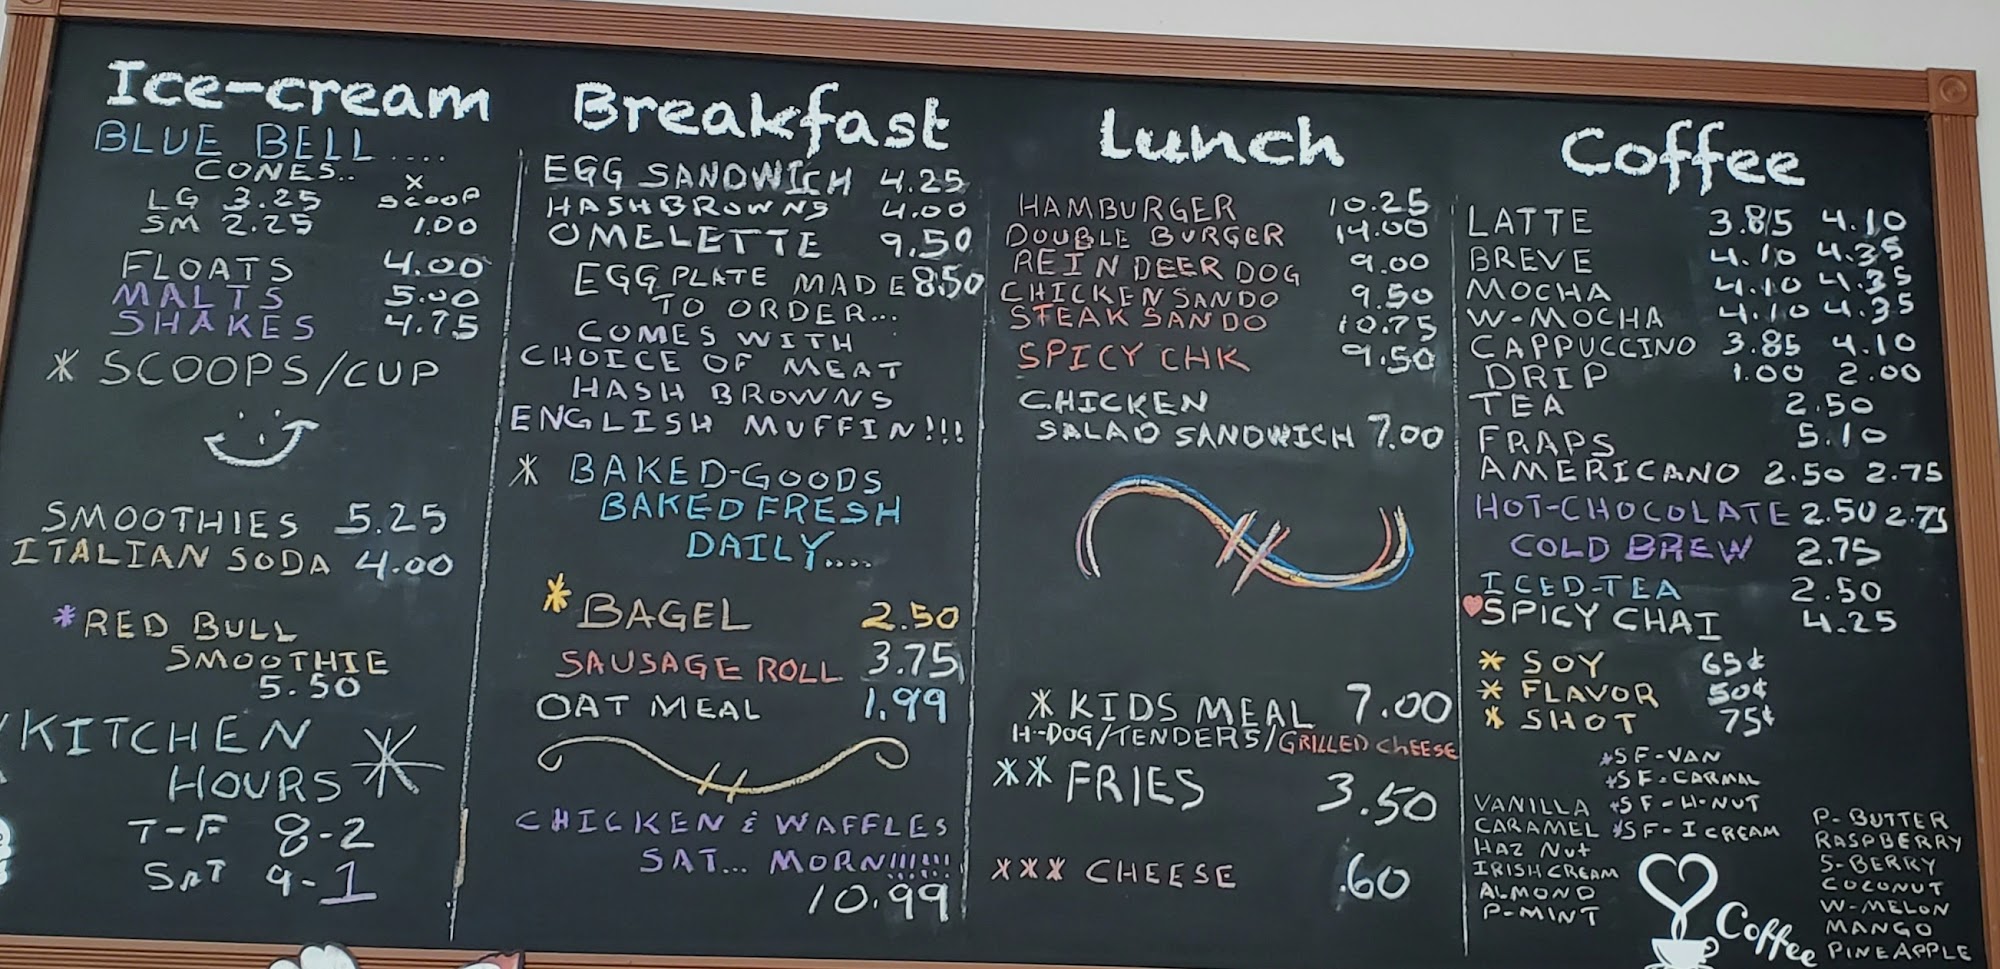 Ice-cream
BLUE BELL....
CONES..
LG 3.25
SM 2.25
X
SCOOP
1.00
FLOATS 4.00
MALTS 5.00
SHAKES 4.75
* SCOOPS/CUP
SMOOTHIES 5.25
ITALIAN SODA 4.00
*RED BULL
SMOOTHIE
5.50
KITCHEN
HOURS *
T-F 8-2
SAT 9-1
Breakfast
EGG SANDWICH 4.25
HASHBROWNS 4.00
OMELETTE 9.50
EGG PLATE MADE 8.50
TO ORDER...
COMES WITH
CHOICE OF MEAT
HASH BROWNS
ENGLISH MUFFIN!!!
* BAKED-GOODS
BAKED FRESH
DAILY....
* BAGEL 2.50
SAUSAGE ROLL 3.75
OATMEAL 1.99
CHICKEN & WAFFLES
SAT... MORN!!!!!!
10.99
Lunch
HAMBURGER 10.25
DOUBLE BURGER 14.00
REINDEER DOG 9.00
CHICKEN SANDO 9.50
STEAK SANDO 10.75
SPICY CHK 9.50
CHICKEN
SALAD SANDWICH 7.00
* KIDS MEAL 7.00
H-DOG/TENDERS/GRILLED CHEESE
** FRIES 3.50
*** CHEESE .60
Coffee
LATTE 3.85 4.10
BREVE 4.10 4.35
MOCHA 4.10 4.35
W-MOCHA 4.10 4.35
CAPPUCCINO 3.85 4.10
DRIP 1.00 2.00
TEA 2.50
FRAPS 5.10
AMERICANO 2.50 2.75
HOT-CHOCOLATE 2.50 2.75
COLD BREW 2.75
ICED-TEA 2.50
SPICY CHAI 4.25
* SOY 65¢
* FLAVOR 50¢
* SHOT 75¢
*SF-VAN
*SF-CARMAL
*SF-H-NUT
*SF-ICREAM
VANILLA
CARAMEL
HAZ NUT
IRISHCREAM
ALMOND
P-MINT
P-BUTTER
RASPBERRY
S-BERRY
COCONUT
W-MELON
MANGO
PINEAPPLE
Coffee